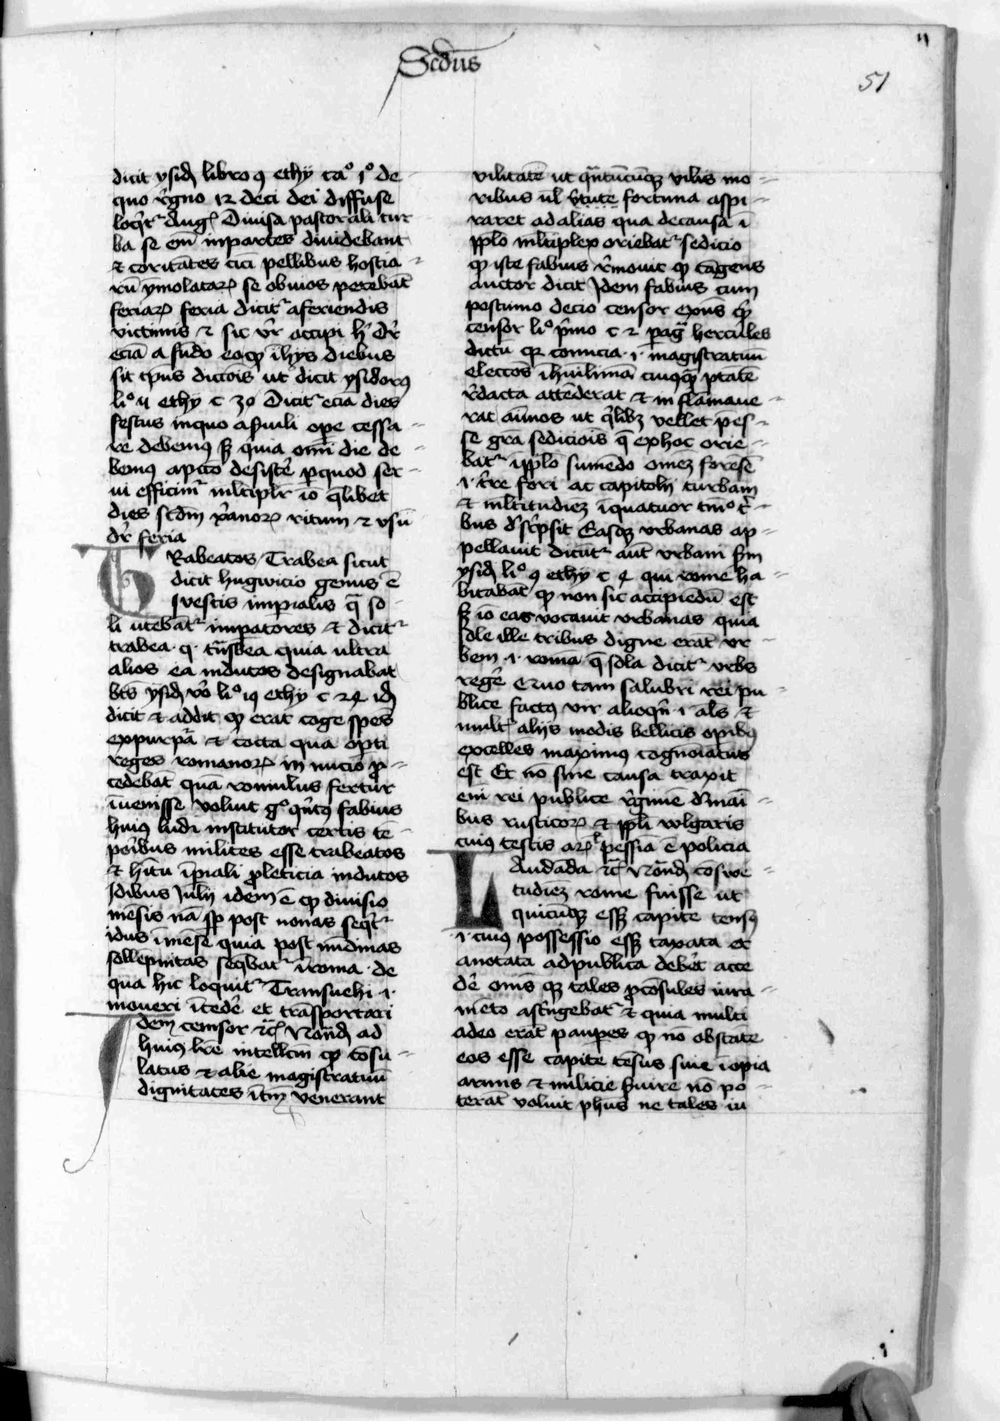 Scd̄us
51
dicit ysid̄ libro 9 ethỹ ca° 1° de-
quo r̄gno 12 deci dei diffuse
loq̄r Aug᷒ Diuisa pastorali tur
ba se em̄ inpartes diuidebant
⁊ coritātes cici pellibus hostia-
rū ymolatarꝝ se obuios petebāt
feriarꝝ feria dicit᷒ aferiendis
victimis ⁊ sic v̄r accipi h̄ dr̄
eciā a fando eo qꝫ ī hys diebus
sit tp̄us dictōis ut dicit ysidorꝰ
li° 6 ethy c 30 Dicit᷒ ecia dies
festus inquo aſuili ope cessa-
re debemꝰ sꝫ quia om̄i die de-
bemꝰ apccō desistē ꝓquod ser-
ui efficim᷒ mltiplr̄ io q̄libet
dies scd̄m xr̄anorꝝ ritum ⁊ vsū
dr̄ feria
Trabeatos Trabea sicut
dicit hugwicio genus ē
vestis impialis q̄ so-
li utebāt᷒ impatores ⁊ dicit᷒
trabea q. trāsbea quia ultra
alios ea indutos designabat
bt̄s ysid̄ v̄o li° 19 ethy c 24 id̄
dicit ⁊ addit qꝫ erat toge spēs
expurpā ⁊ cocta qua opti
reges romanorꝝ in inicio ꝓ-
cedebāt quā romulus fertur
īuenisse voluit g° qn̄tꝰ fabius
huiꝰ ludi institutor certis te-
poribus milites esse trabeatos
⁊ h̄itu īpiali ꝓleticia indutos
Idibus Julii idem ē qꝫ diuisio
mēsis nā sp̄ post nonas seqt᷒
idus ī mēse quia post nūdinas
sollēpnitas seqbat᷒ ī roma de
qua hic loquit᷒ Transuehi .i.
moueri ītcede᷒ et trāsportari
Idem censor ꝛc̄ Nōnd̄ ad
huiꝰ lr̄e intellcm̄ qꝫ cōsu-
latus ⁊ alie magistratuū
dignitates ītm̄ venerant
vilitatē ut qn̄tūcūqꝫ vilis mo-
ribus ul̄ v̄tute fortuna aspi-
raret ad alias qua decausa ī
pplo mltiplex oriebat᷒ sedicio
qꝫ iste fabius r̄mouit qꝫ tāgens
auctor dicit Idem fabius cum
postumo decio censor
censor li° pmo c 2 pag᷒ hercules
dictū qꝫ comicia .i. magistratuū
electōes ī huilimā cuiusqꝫ ptātē
r̄dacta attēderat ⁊ in flāmaue-
rat aīmos ut qlibꝫ vellet pes-
se gra sediciōis q̄ ex hoc orie-
bat᷒ ī pplo sumēdo omēz forēsē
.i. tr̄e fori ac capitolii turbam
⁊ mltitudiēz ī quatuor tm̄° tr-
bus dscp̄sit Easqꝫ vrbanas ap-
pellauit dicūt᷒ aūt vrbani sm̄
ysid̄ li° 9 ethy c 4 qui rome ha-
bitabāt qꝫ non sic accipiēdū est
sꝫ io eas vocauit vrbanas quia
sole ille tribus digne erāt vr-
bem .i. romā q̄ sola dicit᷒ vrbs
regē Quo tam salubri rei pu-
blice factꝰ vir alioqn̄ .i. als ⁊
mult᷒ aliis modis bellicis opibꝰ
excellēs maximus cognoīatus
est Et nō sine causa traxit
eni rei publice r̄gimē
bus rusticorꝝ ⁊ ppli wlgaris
cuiꝰ testis ē policia
Laudāda ꝛc̄ Nōnd̄ cōswe-
tudiēz rome fuisse ut
quicūqꝫ essꝫ capite tensꝰ
.i. cuiꝰ possessio essꝫ taxata et
anotata ad publica debēt acce
dē omīs qꝫ tales ꝓcōsules iura-
mēto astrīgebat᷒ ⁊ quia multi
adeo erāt paupes qꝫ nō obstāte
eos esse capite tēsus siue īopia
armis ⁊ milicie ſuire nō po-
terāt voluit phūs ne tales in